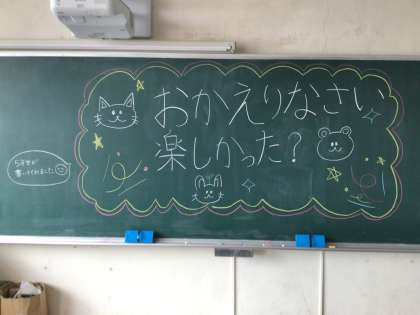 おかえりなさい
楽しかった?
5年生が
書いてくれました